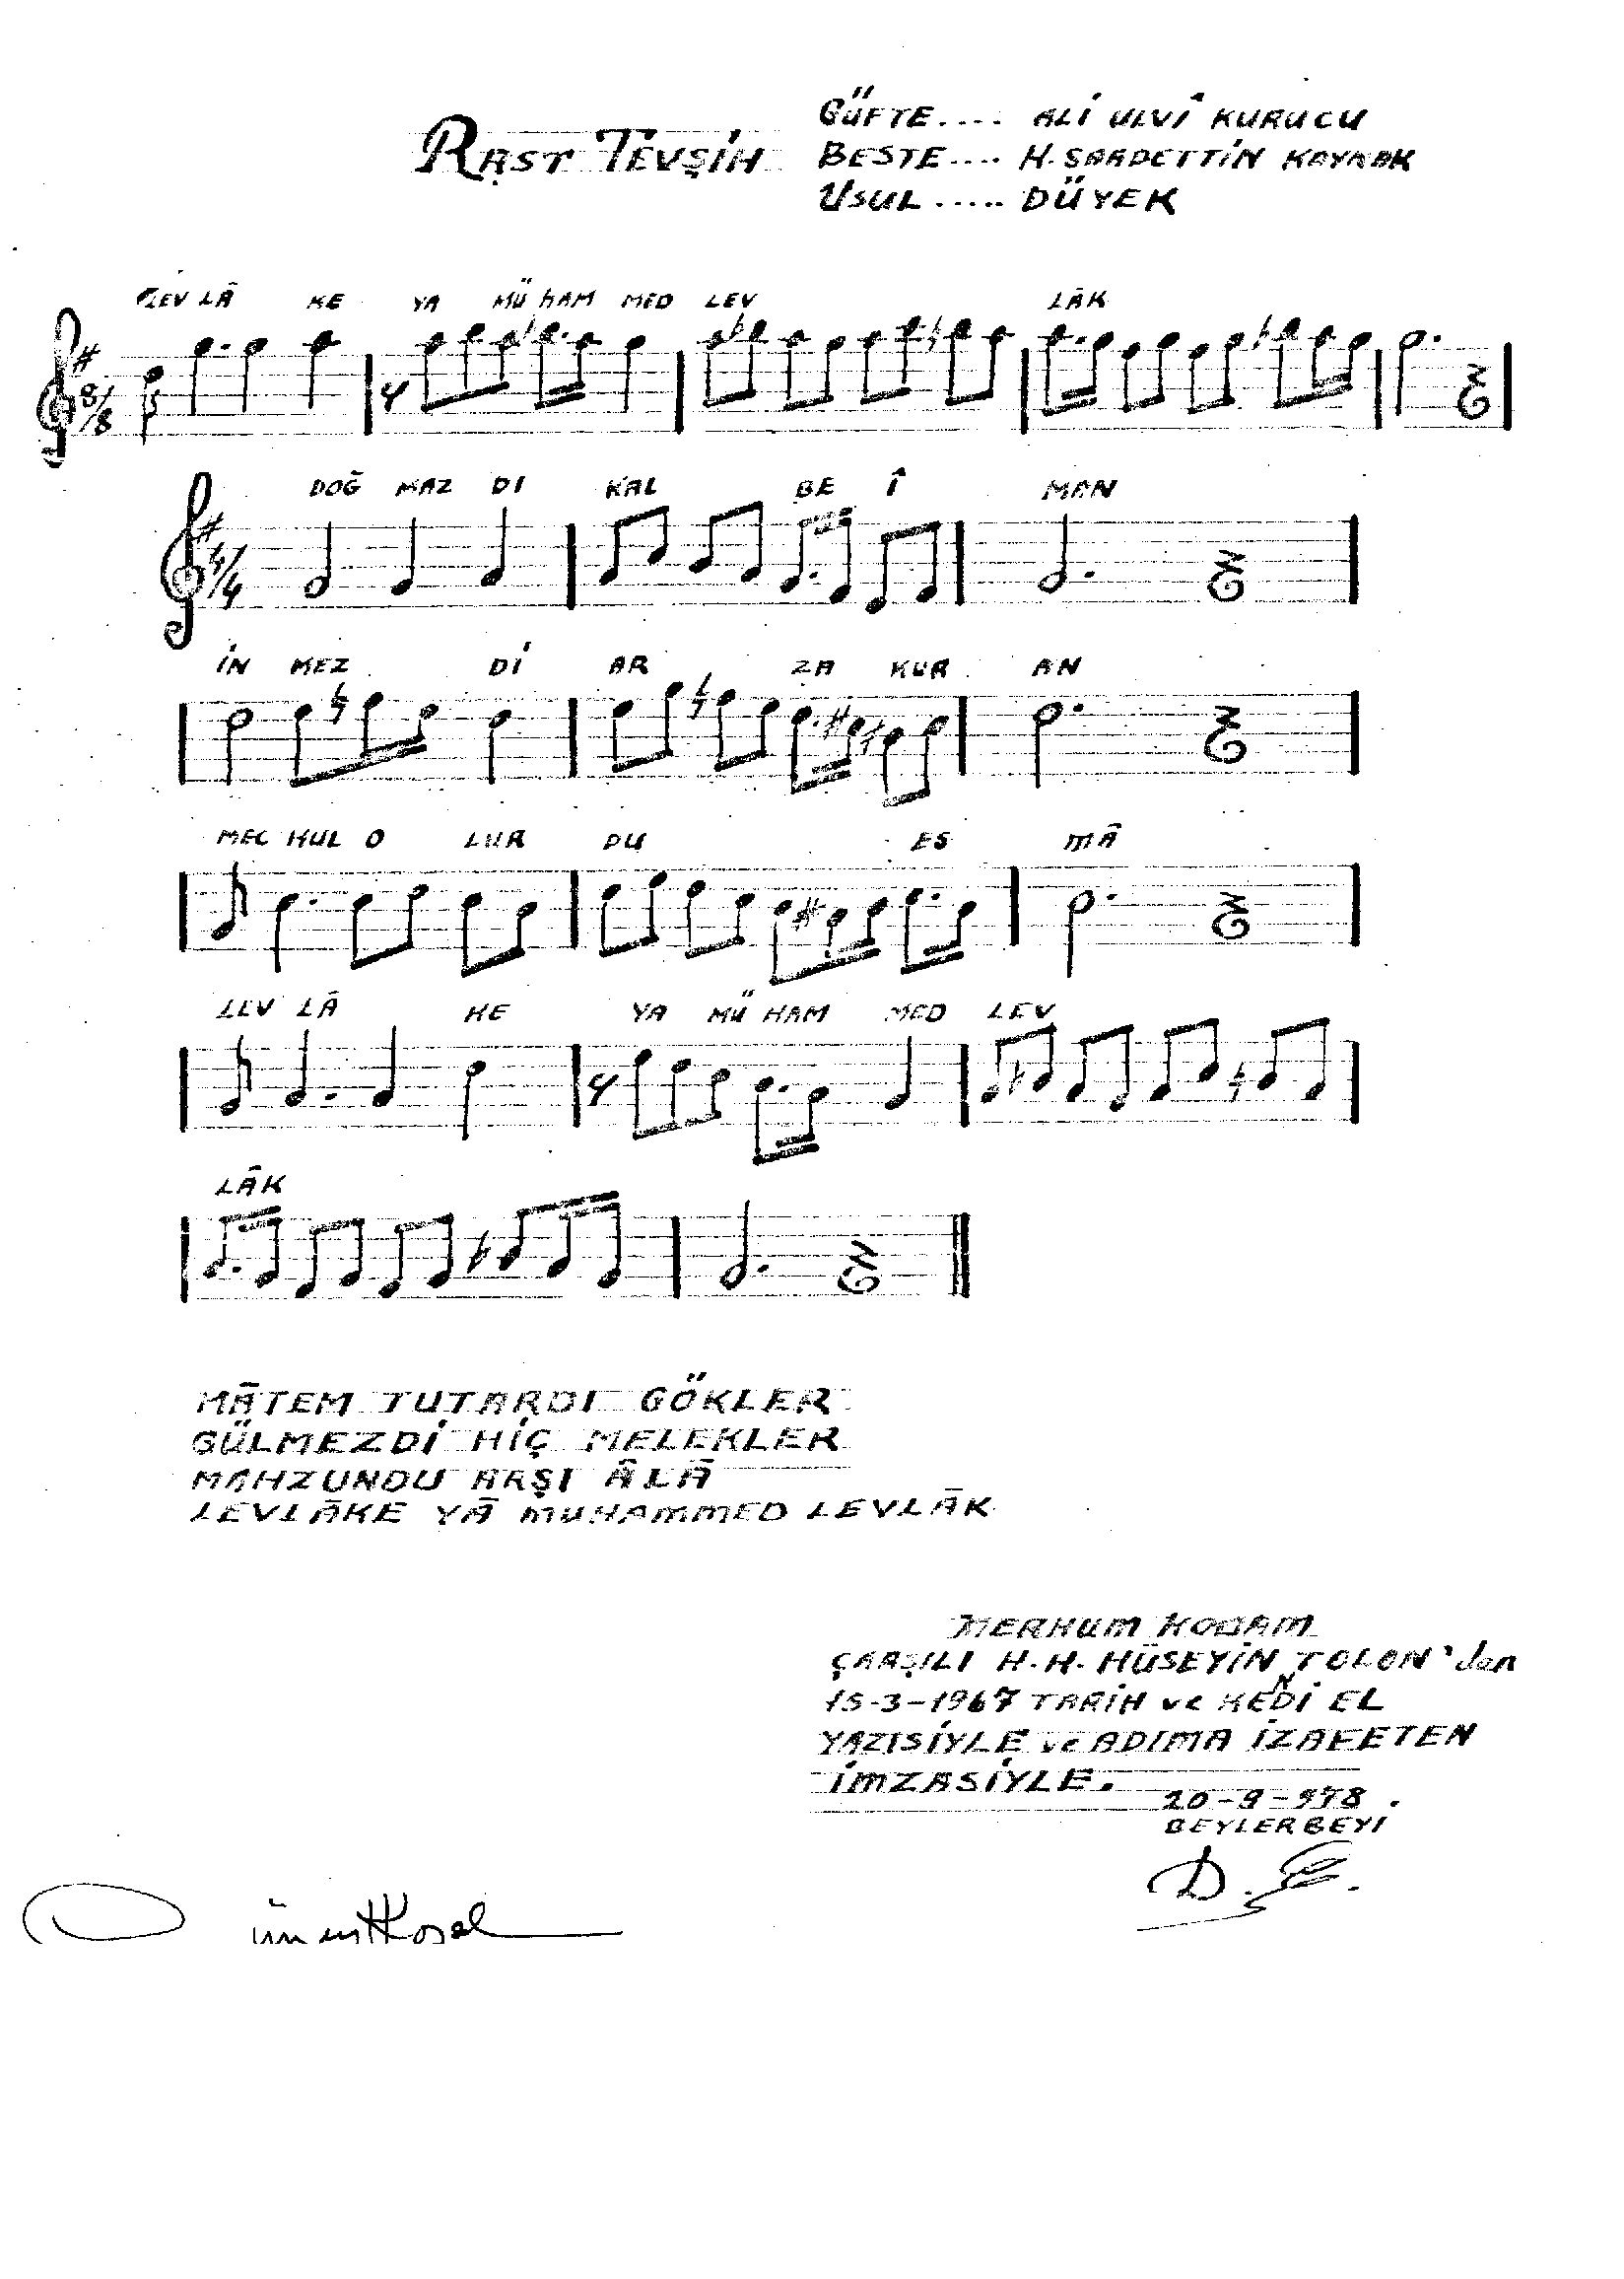 RAST TEVŞİH
GÜFTE.... ALİ ULVÎ KURUCU
BESTE.... H. SAADETTİN KAYNAK
USUL..... DÜYEK
LEV LÂ KE YA MÜ HAM MED LEV LÂK
8/8
4
DOĞ MAZ DI KAL BE Î MAN
4/4
İN MEZ Dİ AR ZA KUR AN
MEC HUL O LUR DU ES MÂ
LEV LÂ KE YA MÜ HAM MED LEV
4
LÂK
MÂTEM TUTARDI GÖKLER
GÜLMEZDİ HİÇ MELEKLER
MAHZUNDU ARŞI ÂLÂ
LEVLÂKE YÂ MUHAMMED LEVLÂK
MERHUM HOCAM
ÇARŞILI H.H. HÜSEYİN TOLON'dan
15-3-1967 TARİH ve KENDİ EL
YAZISİYLE ve ADIMA İZAFETEN
İMZASİYLE.
20-9-978.
BEYLERBEYI